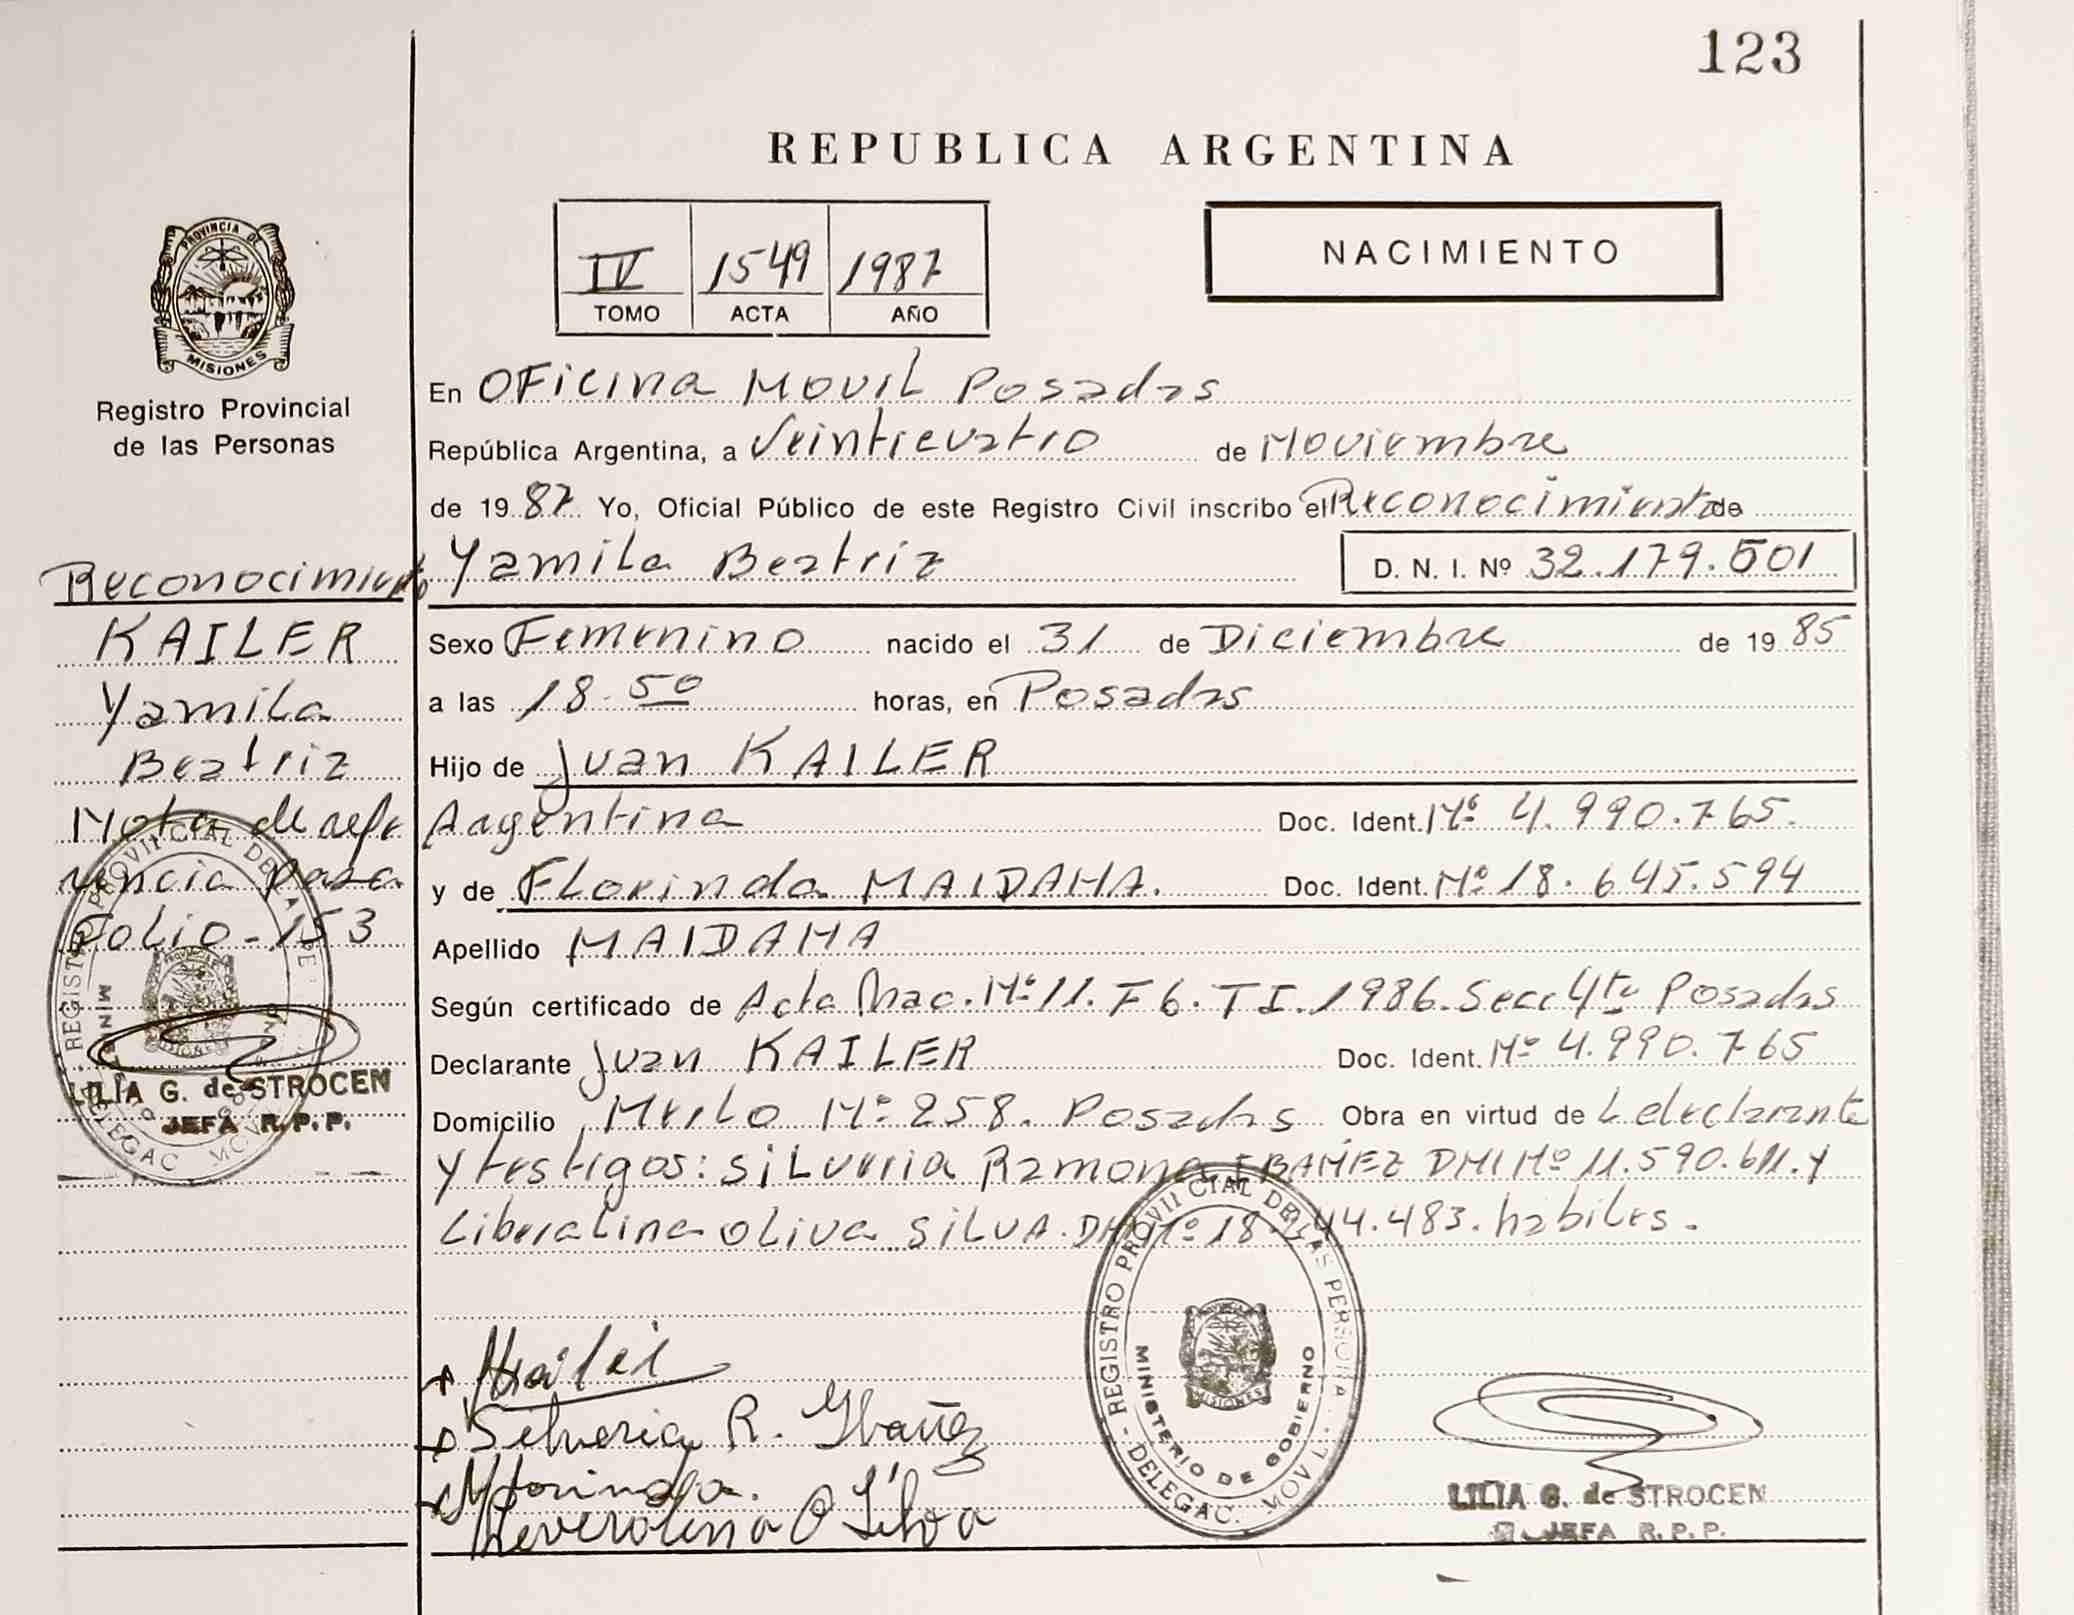 123
REPUBLICA ARGENTINA
IV 1549 1987
TOMO ACTA AÑO
NACIMIENTO
PROVINCIA DE
MISIONES
Registro Provincial
de las Personas
En Oficina Movil Posadas
República Argentina, a Veinticuatro de Noviembre
de 19 87 Yo, Oficial Público de este Registro Civil inscribo el Reconocimiento de
Yamila Beatriz D. N. I. Nº 32.179.501
Sexo Femenino nacido el 31 de Diciembre de 19 85
a las 18.50 horas, en Posadas
Hijo de Juan KAILER
Argentina Doc. Ident. Nº 4.990.765.
y de Florinda MAIDANA. Doc. Ident. Nº 18.645.594
Apellido MAIDANA
Según certificado de Acta Nac. Nº 11. F 6. T I. 1986. Secc 4ta Posadas
Declarante Juan KAILER Doc. Ident. Nº 4.990.765
Domicilio Merlo Nº 258. Posadas Obra en virtud de L declarante
y testigos: Silveria Ramona IBAÑEZ DNI Nº 11.590.611. y
Liberalina Oliva SILVA. DNI Nº 18. 44.483. habiles.
Reconocimiento
KAILER
Yamila
Beatriz
Nota de refe
rencia pasa
Folio - 153
REGISTRO PROVINCIAL DE LAS PERSONAS
LILIA G. de STROCEN
JEFA R.P.P.
Kailer
Silveria R. Ybañez
Florinda.
Leverolina O Silva
REGISTRO PROVINCIAL DE LAS PERSONAS
MINISTERIO DE GOBIERNO
DELEGAC. MOVIL
MISIONES
LILIA G. de STROCEN
JEFA R.P.P.